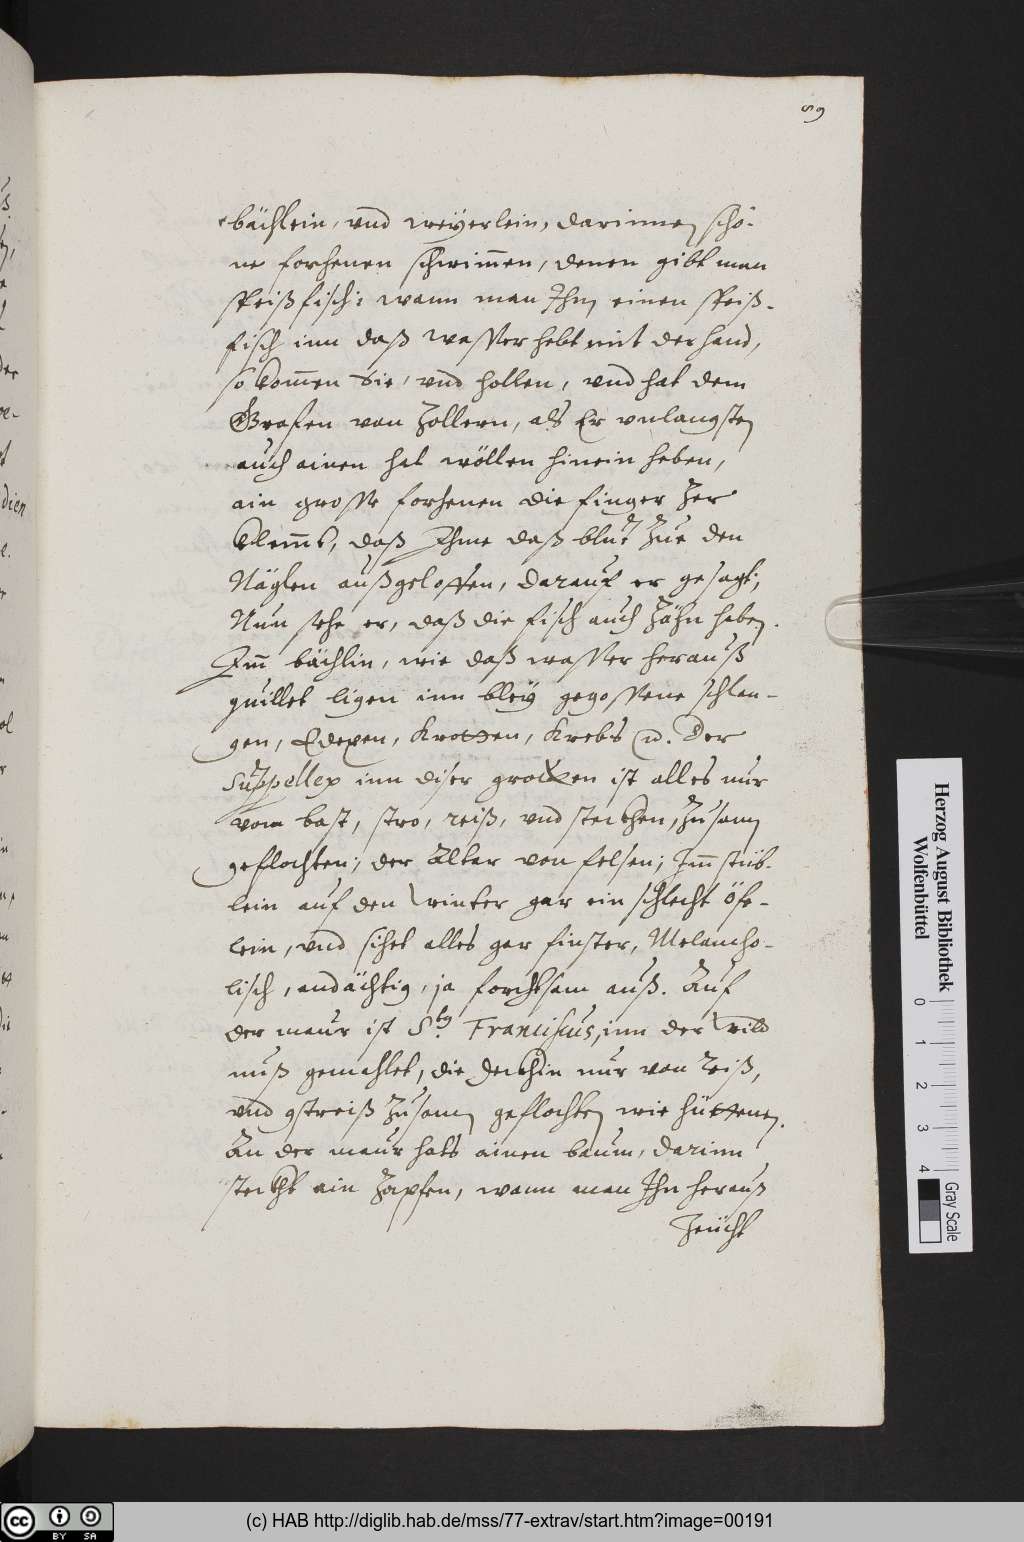 89
bächlein, vnd weÿerlein, darinnen schö-
ne forhenen schwim̄en, denen gibt man
speißfisch: wann man Ihn einen speiß-
fisch inn daß wasser hebt mit der hand,
so kom̄en Sie, vnd hollen, vnd hat dem
Grafen von Zollern, als Er vnlangsten
auch ainen hat wöllen hinein heben,
ain grosse forhenen die finger zer
klem̄t, daß Ihme daß blut zue den
Näglen außgeloffen, darauf er gesagt,
Nun sehe er, daß die fisch auch Zähn haben.
Im̄ bächlin, wie daß wasser herauß
quillet ligen inn bleÿ gegossene schlan-
gen, Edexen, Krotten, Krebs etc. Der
Suppellex inn diser grotten ist alles nur
vom bast, stro, reiß, vnd steckhen, zusam̄
geflochten; der Altar von felsen; Im̄ stüb-
lein auf den winter gar ein schlecht öfe-
lein, vnd sihet alles gar finster, Melancho-
lisch, andächtig, ja forchtsam auß. Auf
der maur ist Stg. Franciscus, inn der Wild
nuß gemahlet, die deckhin nur von Reiß,
vnd gstreiß zusamen geflochten wie hüttenen.
An der maur hats ainen baum, darinn
steckht ain Zapfen, wann man Ihn herauß
Zeücht
Herzog August Bibliothek
Wolfenbüttel
0 1 2 3 4
Gray Scale
cc BY SA
(c) HAB http://diglib.hab.de/mss/77-extrav/start.htm?image=00191